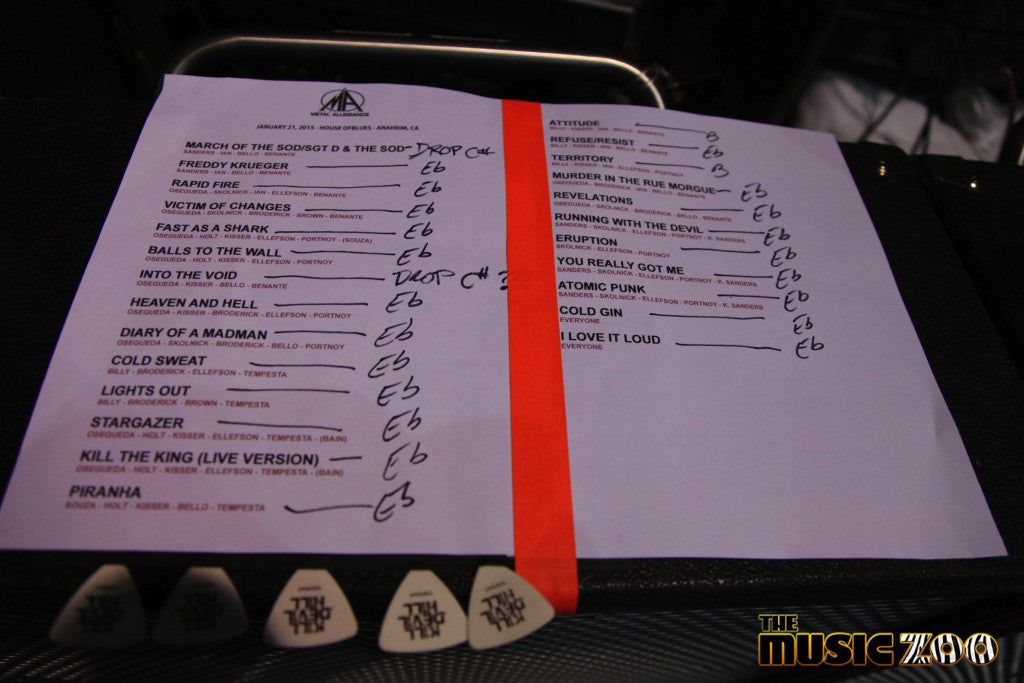 MA
METAL ALLEGIANCE
JANUARY 21, 2015 - HOUSE OF BLUES - ANAHEIM, CA
MARCH OF THE SOD/SGT D & THE SOD DROP C#
SANDERS - IAN - BELLO - BENANTE
FREDDY KRUEGER Eb
SANDERS - IAN - BELLO - BENANTE
RAPID FIRE Eb
OSEGUEDA - SKOLNICK - IAN - ELLEFSON - BENANTE
VICTIM OF CHANGES Eb
OSEGUEDA - SKOLNICK - BRODERICK - BROWN - BENANTE
FAST AS A SHARK Eb
OSEGUEDA - HOLT - KISSER - ELLEFSON - PORTNOY - (SOUZA)
BALLS TO THE WALL Eb
OSEGUEDA - HOLT - KISSER - ELLEFSON - PORTNOY
INTO THE VOID DROP C# ?
OSEGUEDA - KISSER - BELLO - BENANTE
HEAVEN AND HELL Eb
OSEGUEDA - KISSER - BRODERICK - ELLEFSON - PORTNOY
DIARY OF A MADMAN Eb
OSEGUEDA - SKOLNICK - BRODERICK - BELLO - PORTNOY
COLD SWEAT Eb
BILLY - BRODERICK - ELLEFSON - TEMPESTA
LIGHTS OUT Eb
BILLY - BRODERICK - BROWN - TEMPESTA
STARGAZER Eb
OSEGUEDA - HOLT - KISSER - ELLEFSON - TEMPESTA - (BAIN)
KILL THE KING (LIVE VERSION) Eb
OSEGUEDA - HOLT - KISSER - ELLEFSON - TEMPESTA - (BAIN)
PIRANHA Eb
SOUZA - HOLT - KISSER - BELLO - TEMPESTA
ATTITUDE B
BILLY - KISSER - IAN - BELLO - BENANTE
REFUSE/RESIST Eb
BILLY - KISSER - IAN - BELLO - BENANTE
TERRITORY B
BILLY - KISSER - IAN - ELLEFSON - PORTNOY
MURDER IN THE RUE MORGUE Eb
OSEGUEDA - BRODERICK - IAN - BELLO - BENANTE
REVELATIONS Eb
OSEGUEDA - SKOLNICK - BRODERICK - BELLO - BENANTE
RUNNING WITH THE DEVIL Eb
SANDERS - SKOLNICK - ELLEFSON - PORTNOY - K. SANDERS
ERUPTION Eb
SKOLNICK - ELLEFSON - PORTNOY
YOU REALLY GOT ME Eb
SANDERS - SKOLNICK - ELLEFSON - PORTNOY - K. SANDERS
ATOMIC PUNK Eb
SANDERS - SKOLNICK - ELLEFSON - PORTNOY - K. SANDERS
COLD GIN Eb
EVERYONE
I LOVE IT LOUD Eb
EVERYONE
KILL
DEVIL
HILL
KILL
DEVIL
HILL
KILL
DEVIL
HILL
KILL
DEVIL
HILL
KILL
DEVIL
HILL
THE
MUSIC ZOO